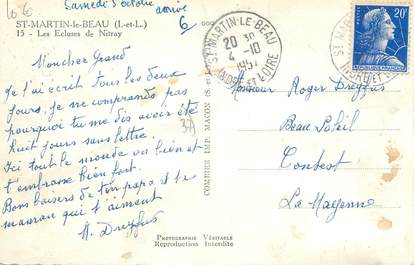 Samedi 5 octobre
6
ST-MARTIN-le-BEAU (I.-et-L.)
15 - Les Ecluses de Nitray
ST-MARTIN-LE-BEAU
20 30
4 -10
1957
INDRE ET LOIRE
20F
REPUBLIQUE FRANÇAISE
Mon cher Grand
Je t'ai écrit tous les deux
jours, je ne comprends pas
pourquoi tu me dis avoir été
huit jours sans lettre.
Ici tout le monde va bien et
t'embrasse bien fort.
Bons baisers de ton papa et ta
maman qui t'aiment
M. Dreyfus
Monsieur Roger Dreyfus
Beau Soleil
Contest
La Mayenne
COMBIER IMP. MACON (S.-et-L.)
PHOTOGRAPHIE VÉRITABLE
Reproduction Interdite